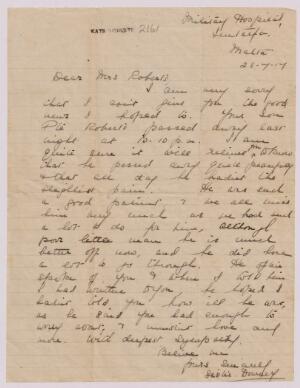 Military Hospital,
Malta
Dear Mrs Roberts
I am very sorry
that I can't give you the good
news I hoped to. Your son
Pte Roberts passed away last
night at 10.10 p.m. I am
quite sure it will relieve you to know
that he passed away quite peacefully
& that all day he hadn't the
slightest pain. He was such
a good patient & we all miss
him very much as we had such
a lot to do for him, although
poor little man he is much
better off now, and he did have
a lot to go through. He often
spoke of you & when I told him
I had written to you he hoped I
hadn't told you how ill he was,
as he said you had enough to
worry about, & wouldn't love any
more. With deepest sympathy.
Believe me
Yours Sincerely